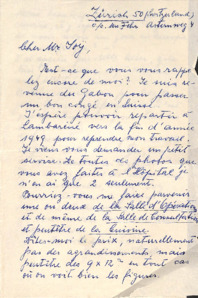 Zürich 50 (Switzerland)
Cher Mr Soy,
Peut-être que vous vous rappe-
lez encore de moi? Je suis re-
venue du Gabon pour passer
un bon congé en Suisse.
J'espère pouvoir repartir à
Lambaréné vers la fin d'année
1949 pour reprendre mon travail.
Je viens vous demander un petit
service: De toutes les photos que
vous avez faites à l'Hôpital je
n'en ai que 2 seulement.
Pourriez-vous me faire parvenir
une ou deux de la Salle d'Opération
et de même de la Salle de Consultation
et peutêtre de la Cuisine.
Dites-moi le prix, naturellement
pas des agrandissements mais
peutêtre des 9 x 12 en tout cas
où on voit bien les figures.